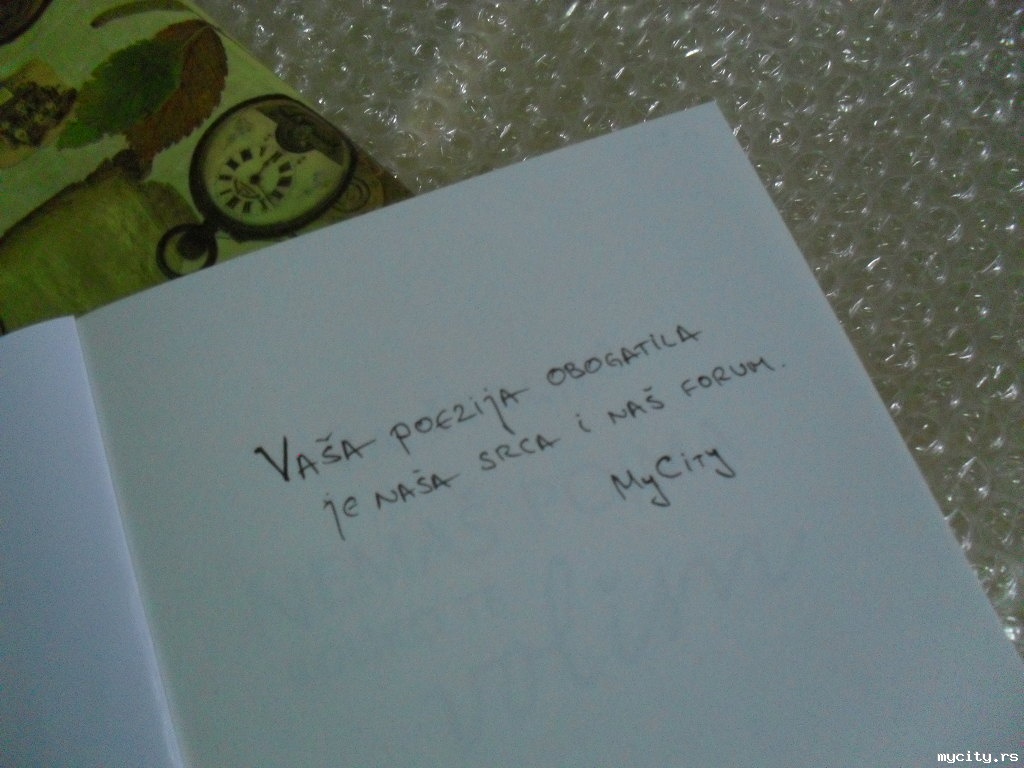 Vaša poezija obogatila
je naša srca i naš forum.
MyCity
mycity.rs